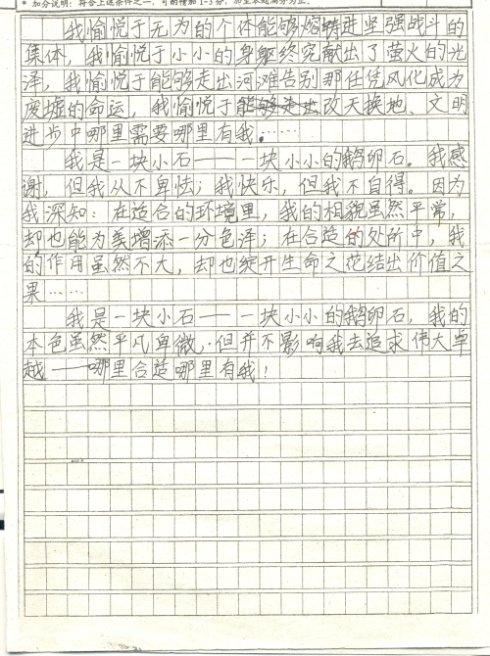 * 加分说明：符合上述条件之一，可酌情加1-3分，加至本题满分为止。
我愉悦于无为的个体能够熔铸进坚强战斗的
集体，我愉悦于小小的身躯终究献出了萤火的光
泽，我愉悦于能够走出河滩告别那任凭风化成为
废墟的命运，我愉悦于能改天换地、文明
进步中哪里需要哪里有我。……
我是一块小石——一块小小的鹅卵石。我感
谢，但我从不卑怯；我快乐，但我不自得。因为
我深知：在适合的环境里，我的相貌虽然平常，
却也能为美增添一分色泽；在合适的处所中，我
的作用虽然不大，却也绽开生命之花结出价值之
果……
我是一块小石——一块小小的鹅卵石，我的
本色虽然平凡卑微，但并不影响我去追求伟大卓
越——哪里合适哪里有我！